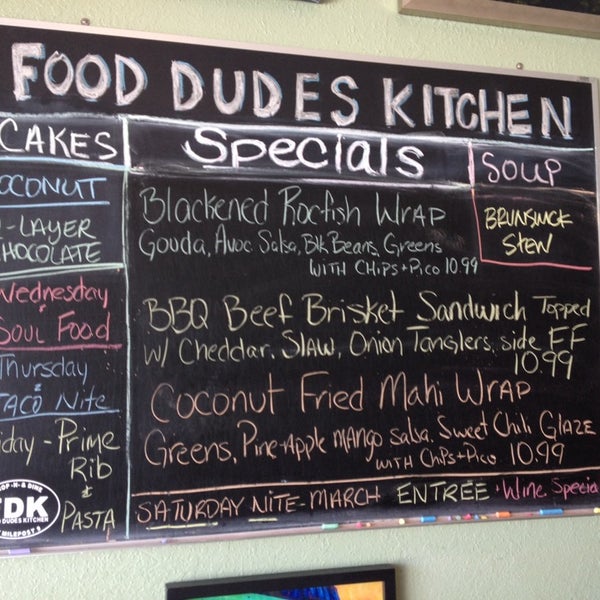 FOOD DUDES KITCHEN
CAKES
OCONUT
-LAYER
HOCOLATE
Wednesday
Soul Food
Thursday
&
TACO Nite
iday - Prime
Rib
&
PASTA
Specials
Blackened Rocfish Wrap
Gouda, Avoc Salsa, Blk Beans, Greens
WITH CHiPs + Pico 10.99
BBQ Beef Brisket Sandwich Topped
w/ Cheddar, Slaw, Onion Tanglers, side FF
10.99
Coconut Fried Mahi Wrap
Greens, Pine-Apple mango salsa, Sweet Chili Glaze
WITH ChiPs + Pico 10.99
SATURDAY NITE - MARCH ENTRÉE + Wine Specia
SOUP
BRUNSWICK
Stew
OP -N- & DINE
FDK
DUDES KITCHEN
MILEPOST